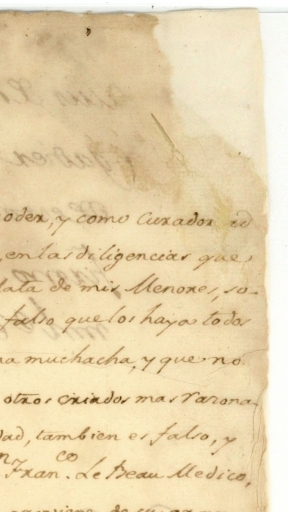 oder, y como Curador ad
, en las diligencias que
lata de mis Menores, so-
falso que los haya todos
na muchacha, y que no
otros criados mas Varona
dad, tambien es falso, y
n Fran.co Le Beau Medico,